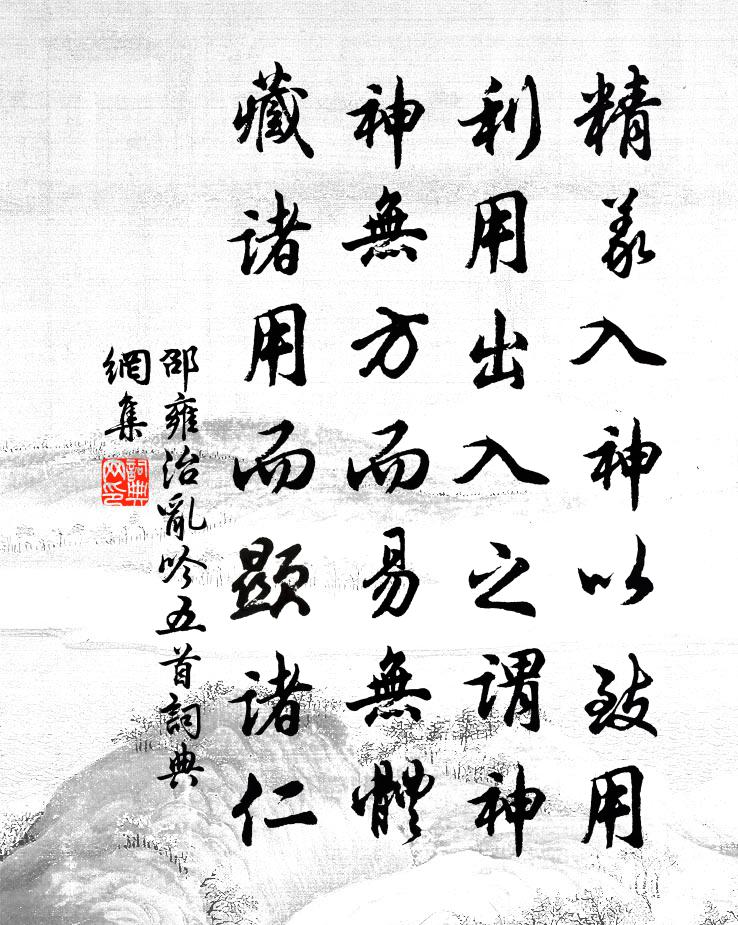 精義入神以致用
利用出入之謂神
神無方而易無體
藏諸用而顯諸仁
邵雍治亂吟五首詞典
網集
詞典
網印